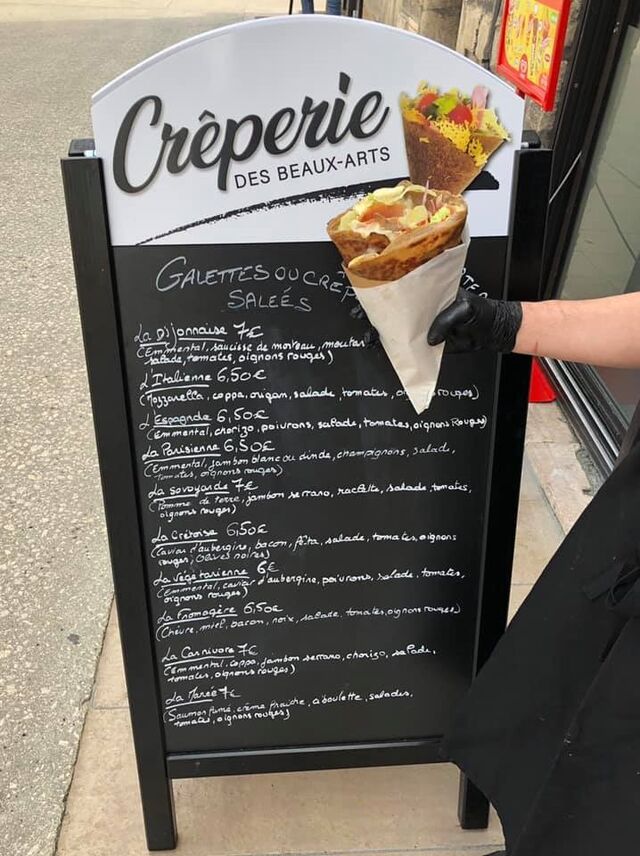 Crêperie
DES BEAUX-ARTS
GALETTES OU CRÊP
SALEÉS
La Dijonnaise 7€
(Emmental, saucisse de morteau, moutar
salade, tomates, oignons rouges)
L'Italienne 6,50€
(Mozzarella, coppa, origan, salade, tomates, rouges)
L'Espagnole 6,50€
(Emmental, chorizo, poivrons, salade, tomates, oignons Rouges)
La Parisienne 6,50€
(Emmental, jambon blanc ou dinde, champignons, salade,
tomates, oignons rouges)
La savoyarde 7€
(Pomme de terre, jambon serrano, raclette, salade, tomates,
oignons rouges)
La Crétoise 6,50€
(Caviar d'aubergine, bacon, fêta, salade, tomates, oignons
rouges, Olives noires)
La végétarienne 6€
(Emmental, caviar d'aubergine, poivrons, salade, tomates,
oignons rouges)
La Fromagère 6,50€
(Chèvre, miel, bacon, noix, salade, tomates, oignons rouges)
La Carnivore 7€
(Emmental, coppa, jambon serrano, chorizo, salade,
tomates, oignons rouges)
La Marée 7€
(Saumon fumé, crème fraiche, ciboulette, salades,
tomates, oignons rouges)